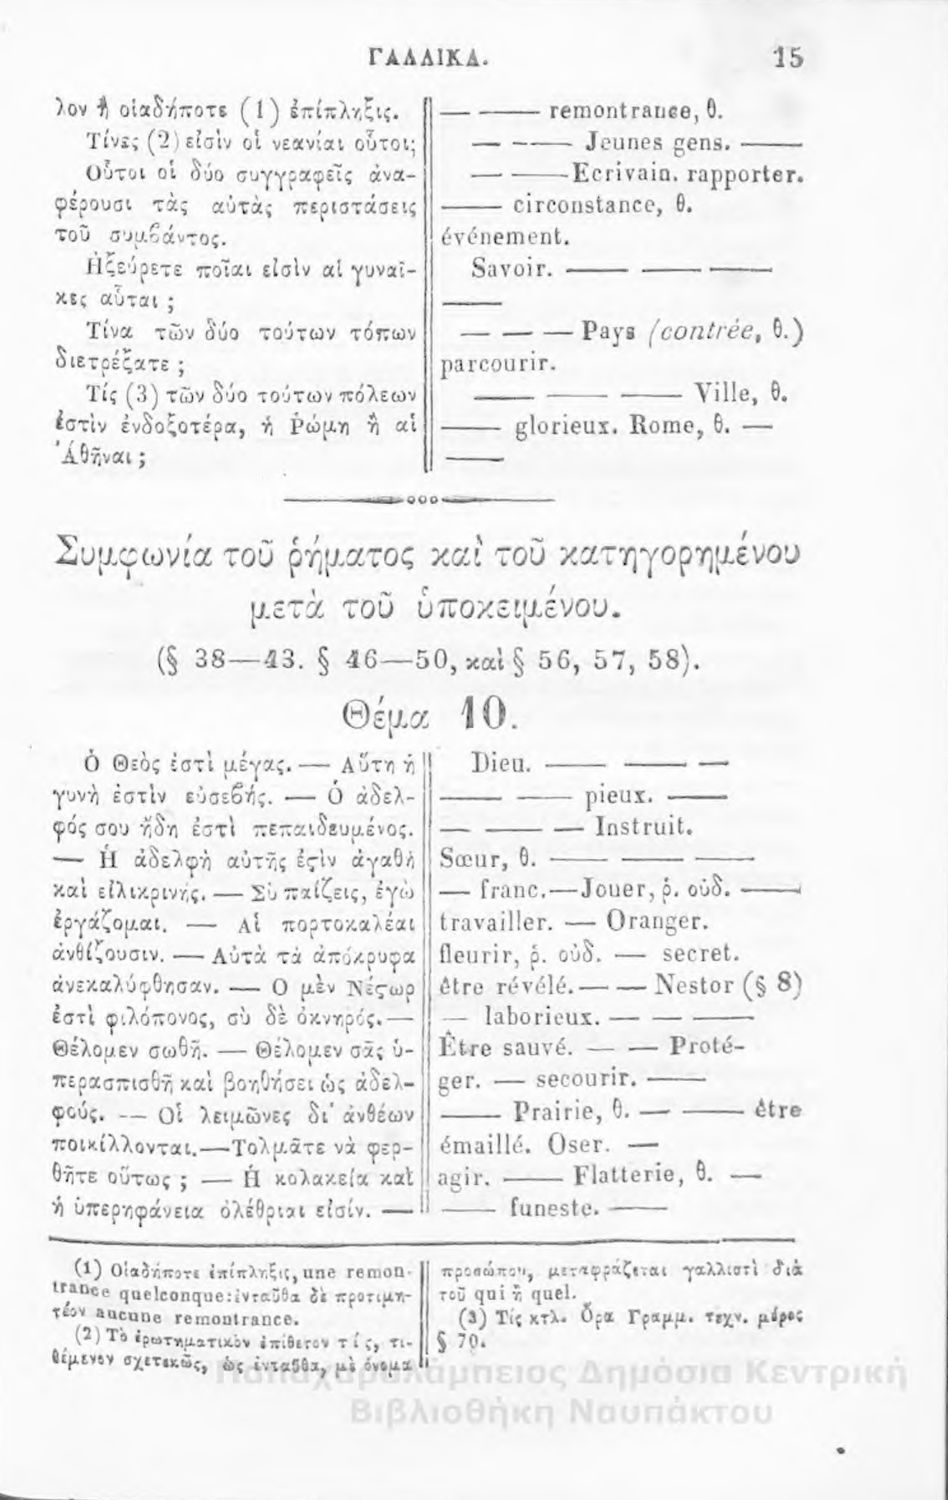 ΓΑΛΛΙΚΑ. 15
λον ἢ οἱαδήποτε (1) ἐπίπληξις.
Τίνες (2) εἰσὶν οἱ νεανίαι οὗτοι;
Οὗτοι οἱ δύο συγγραφεῖς ἀνα-
φέρουσι τὰς αὐτὰς περιστάσεις
τοῦ συμβάντος.
Ἠξεύρετε ποῖαι εἰσὶν αἱ γυναῖ-
κες αὗται ;
Τίνα τῶν δύο τούτων τόπων
διετρέξατε ;
Τίς (3) τῶν δύο τούτων πόλεων
ἐστὶν ἐνδοξοτέρα, ἡ Ῥώμη ἢ αἱ
Ἀθῆναι ;
— —— remontrance, θ.
— —— Jeunes gens. ——
— ——Ecrivain. rapporter.
—— circonstance, θ.
événement.
Savoir. —— —— ——
——
— — — Pays (contrée, θ.)
parcourir.
—— —— —— Ville, θ.
—— glorieux. Rome, θ. —
——
Συμφωνία τοῦ ῥήματος καὶ τοῦ κατηγορημένου
μετὰ τοῦ ὑποκειμένου.
(§ 38—43. § 46—50, καὶ § 56, 57, 58).
Θέμα 10.
Ὁ Θεὸς ἐστὶ μέγας. — Αὕτη ἡ
γυνὴ ἐστὶν εὐσεβής. — Ὁ ἀδελ-
φός σου ἤδη ἐστὶ πεπαιδευμένος.
— Ἡ ἀδελφὴ αὐτῆς ἐςὶν ἀγαθὴ
καὶ εἰλικρινής. — Σὺ παίζεις, ἐγὼ
ἐργάζομαι. — Αἱ πορτοκαλέαι
ἀνθίζουσιν. — Αὐτὰ τὰ ἀπόκρυφα
ἀνεκαλύφθησαν. — Ὁ μὲν Νέςωρ
ἐστὶ φιλόπονος, σὺ δὲ ὀκνηρός.—
Θέλομεν σωθῆ. — Θέλομεν σᾶς ὑ-
περασπισθῆ καὶ βοηθήσει ὡς ἀδελ-
φούς. — Οἱ λειμῶνες δι' ἀνθέων
ποικίλλονται.—Τολμᾶτε νὰ φερ-
θῆτε οὕτως ; — Ἡ κολακεία καὶ
ἡ ὑπερηφάνεια ὀλέθριαι εἰσίν. —
Dieu. —— —— —
—— —— pieux. ——
— —— — Instruit.
Sœur, θ. —— —— ——
— franc.—Jouer, ῥ. οὐδ. ——
travailler. — Oranger.
fleurir, ῥ. οὐδ. — secret.
être révélé.— — Nestor (§ 8)
— laborieux. — — ——
Être sauvé. — — Proté-
ger. — secourir. ——
—— Prairie, θ. — —— être
émaillé. Oser. —
agir. —— Flatterie, θ. —
—— funeste. ——
(1) Οἱαδήποτε ἐπίπληξις, une remon-
trance quelconque: ἐνταῦθα δὲ προτιμη-
τέον aucune remontrance.
(2) Τὸ ἐρωτηματικὸν ἐπίθετον τίς, τι-
θέμενον σχετικῶς, ὡς ἐνταῦθα, μὲ ὄνομα
προσώπου, μεταφράζεται γαλλιστὶ διὰ
τοῦ qui ἢ quel.
(3) Τίς κτλ. Ὅρα Γραμμ. τεχν. μέρος
§ 70.
Παπαχαραλάμπειος Δημόσια Κεντρική
Βιβλιοθήκη Ναυπάκτου